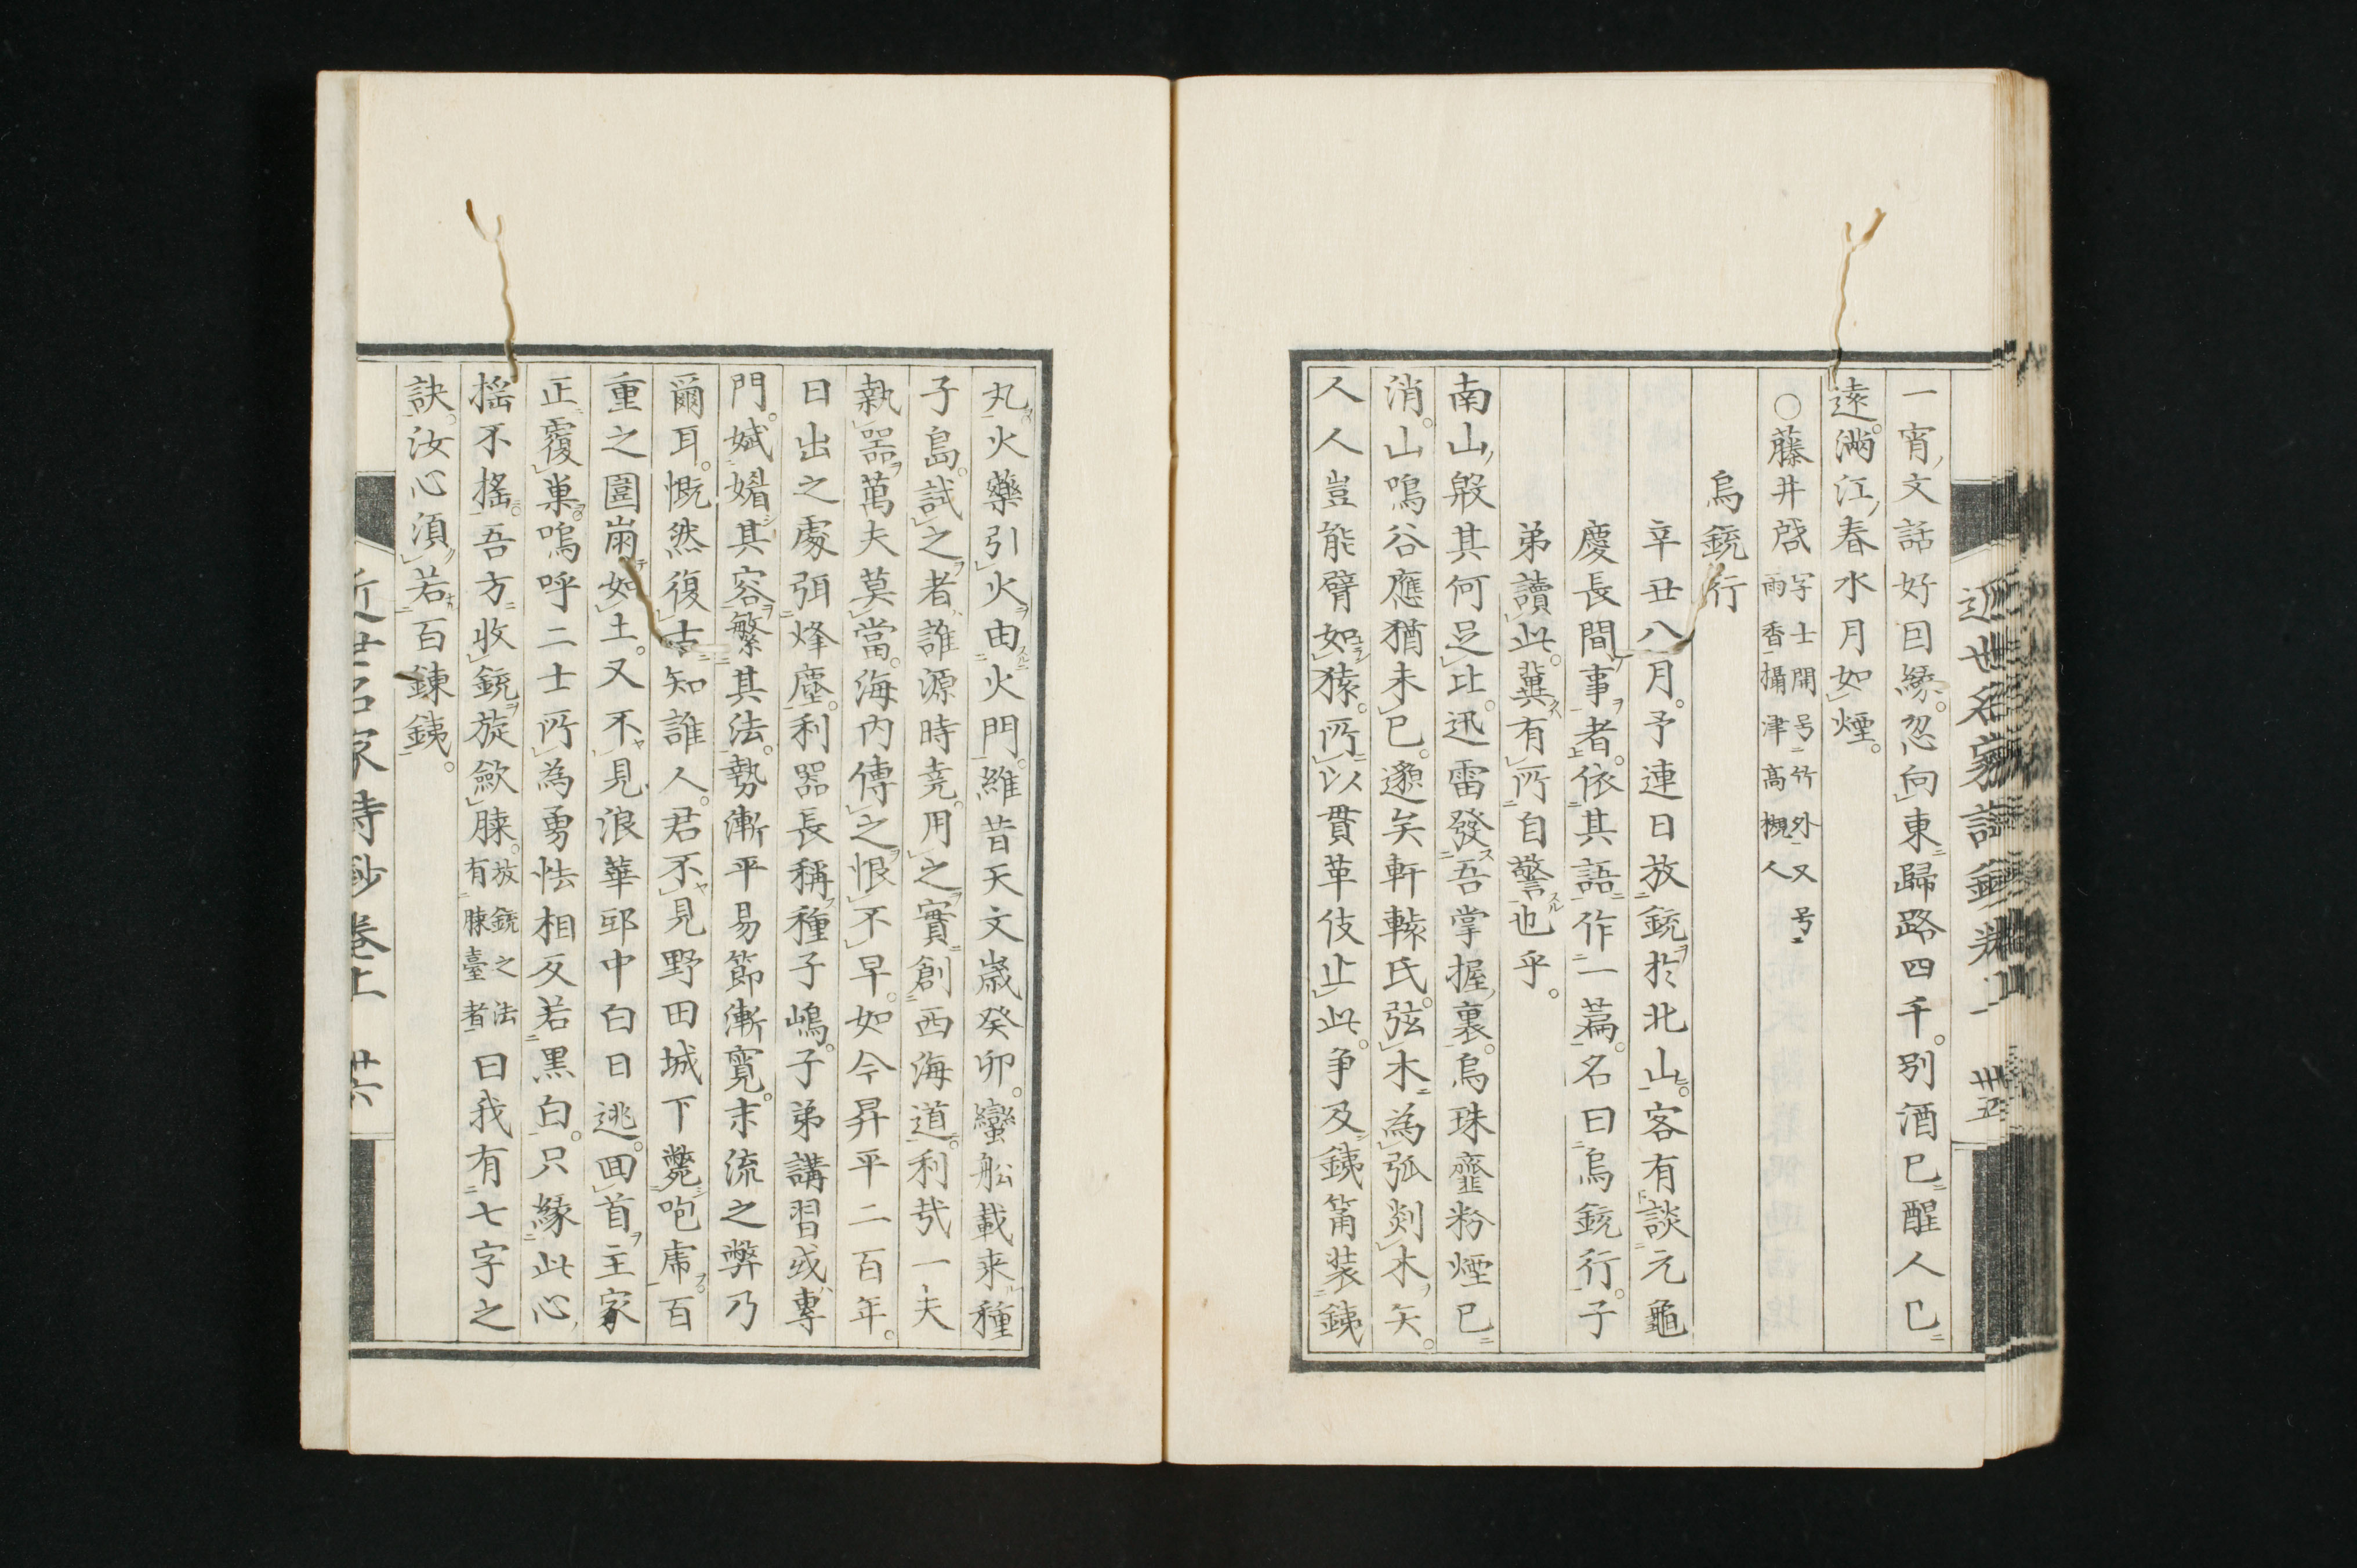 一宵文話好因縁。忽向東歸路四千。別酒已醒人已
遠。滿江春水月如煙。
○藤井啓 字士開号竹外又号雨香攝津高槻人
烏銃行
辛丑八月。予連日放銃於北山。客有談元龜
慶長間事者。依其語作一篇。名曰烏銃行。子
弟讀此。冀有所自警也乎。
南山殷其何足比。迅雷發吾掌握裏。烏珠齏粉煙已
消。山鳴谷應猶未已。邈矣軒轅氏。弦木為弧剡木矢。
人人豈能臂如猿。所以貫革伎止此。爭及銕筩裝銕
丸。火藥引火由火門。維昔天文歲癸卯。蠻舩載來種
子島。試之者誰源時尭。用之實創西海道。利哉一夫
執器萬夫莫當。海内傳之恨不早。如今昇平二百年。
日出之處弭烽塵。利器長稱種子嶋。子弟講習或專
門。斌媚其容繁其法。勢漸平易節漸寬。末流之弊乃
爾耳。慨然復古知誰人。君不見野田城下斃咆虎。百
重之圍崩如土。又不見浪華郛中白日逃。囬首主家
正覆巢。嗚呼二士所為勇怯相反若黒白。只縁此心
搖不搖。吾方收銃旋歛腜。放銃之法有腜臺者 曰我有七字之
訣。汝心須若百鍊銕。
近世名家詩鈔卷上 卅五
近世名家詩鈔卷上 卅六